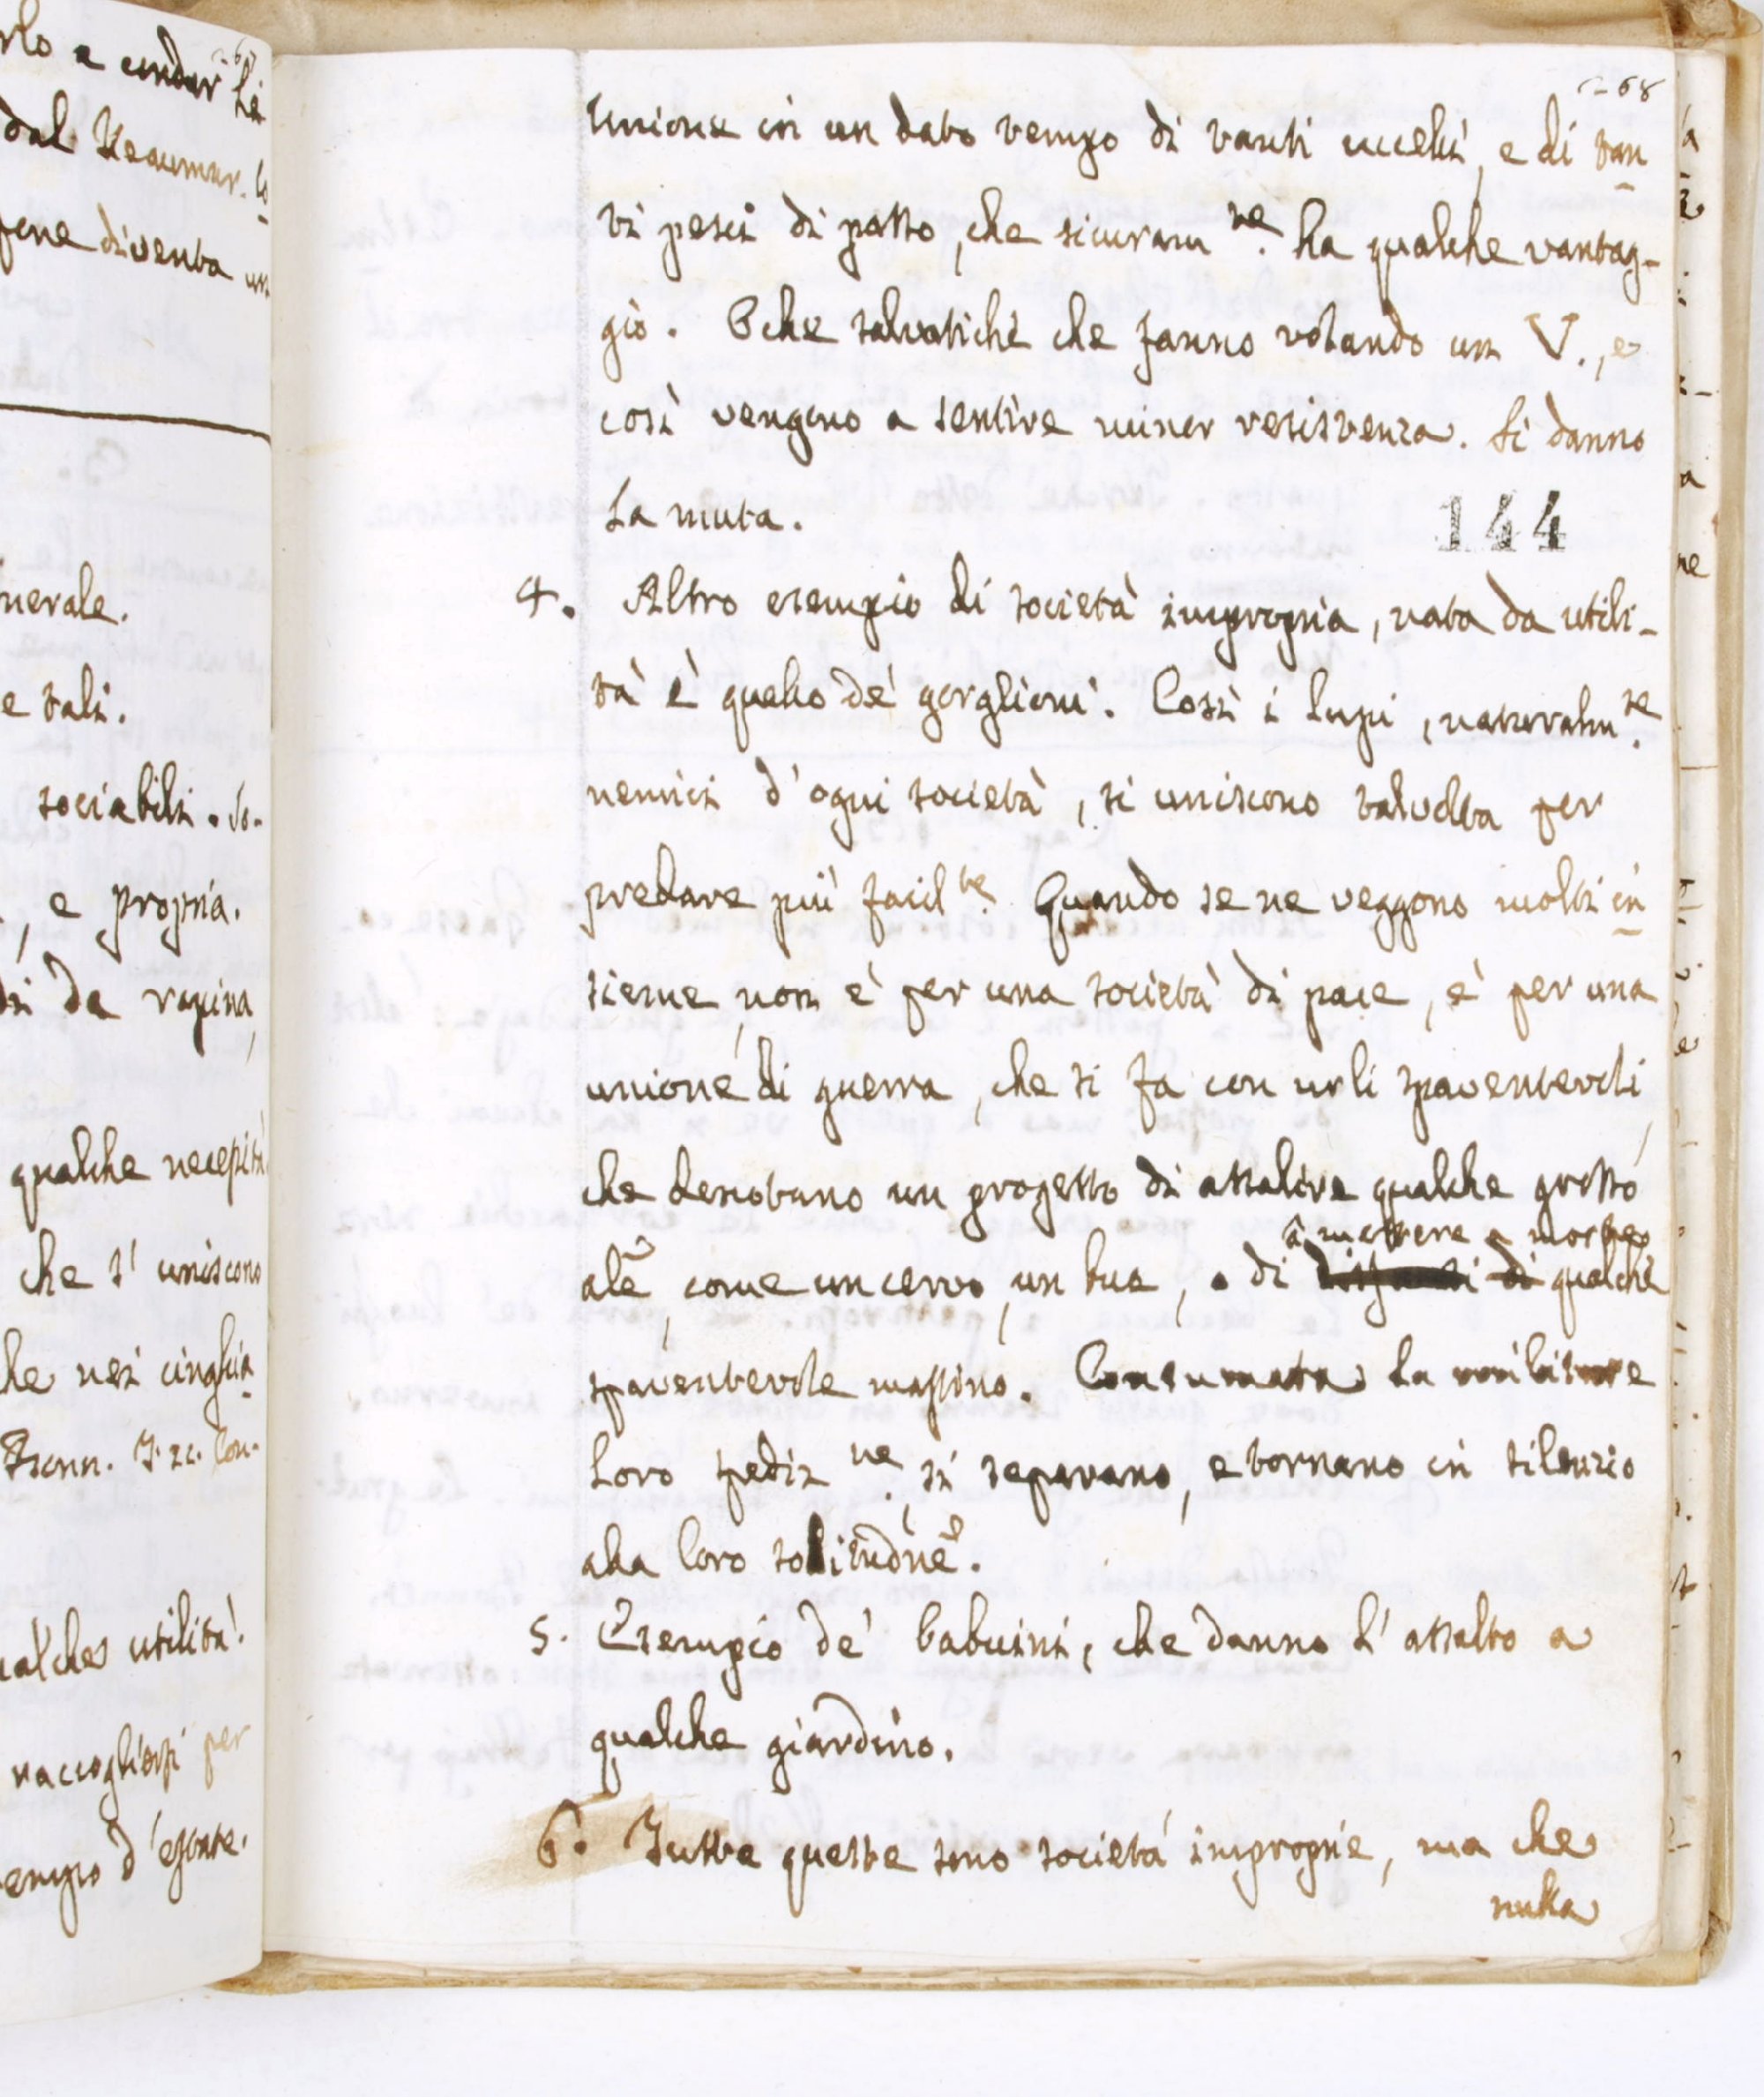 rlo a cender La
267
dal Reaumur. Co
fene diventa un
nerale.
e tali.
sociabili. So-
, e propria.
si da rapina,
qualche necessità
che s' uniscono
he nei cinghia
Bonn. T. 21. Con-
ualche utilità.
raccogliersi per
empo d'estate.
268
Unione in un dato tempo di tanti uccelli, e di tan
ti pesci di passo, che sicuram.te ha qualche vantag-
gio. Oche salvatiche che fanno volando un V., e
così vengono a sentire minor resistenza. Si danno
La muta.
144
4. Altro esempio di società impropria, nata da utili-
tà è quello de' gorglioni. Così i lupi, naturalm.te
nemici d'ogni società, si uniscono talvolta per
predare più facil.te Quando se ne veggono molti in
sieme, non è per una società di pace, è per una
unione di guerra, che si fa con urli spaventevoli,
che denotano un progetto di assalire qualche grosso
a mettere a morte
ale, come un cervo, un bue, o di di qualche
spaventevole mastino. Consumata la militare
Loro spediz.ne, si separano, e tornano in silenzio
alla loro solitudne.
5. Esempio de' babuini, che danno l'assalto a
qualche giardino.
6. Tutte queste sono società improprie, ma che
nulla